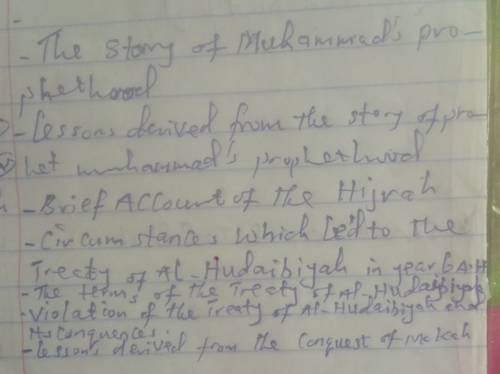 - The story of Muhammad's pro-
phethood
- Lessons derived from the story of pro-
het muhammad's prophethood
- Brief Account of the Hijrah
- Circumstances which led to the
Treaty of Al-Hudaibiyah in year 6 A.H
- The terms of the Treaty of Al-Hudaibiyah
- Violation of the Treaty of Al-Hudaibiyah and
its conquences.
- Lessons derived from the conquest of makkah